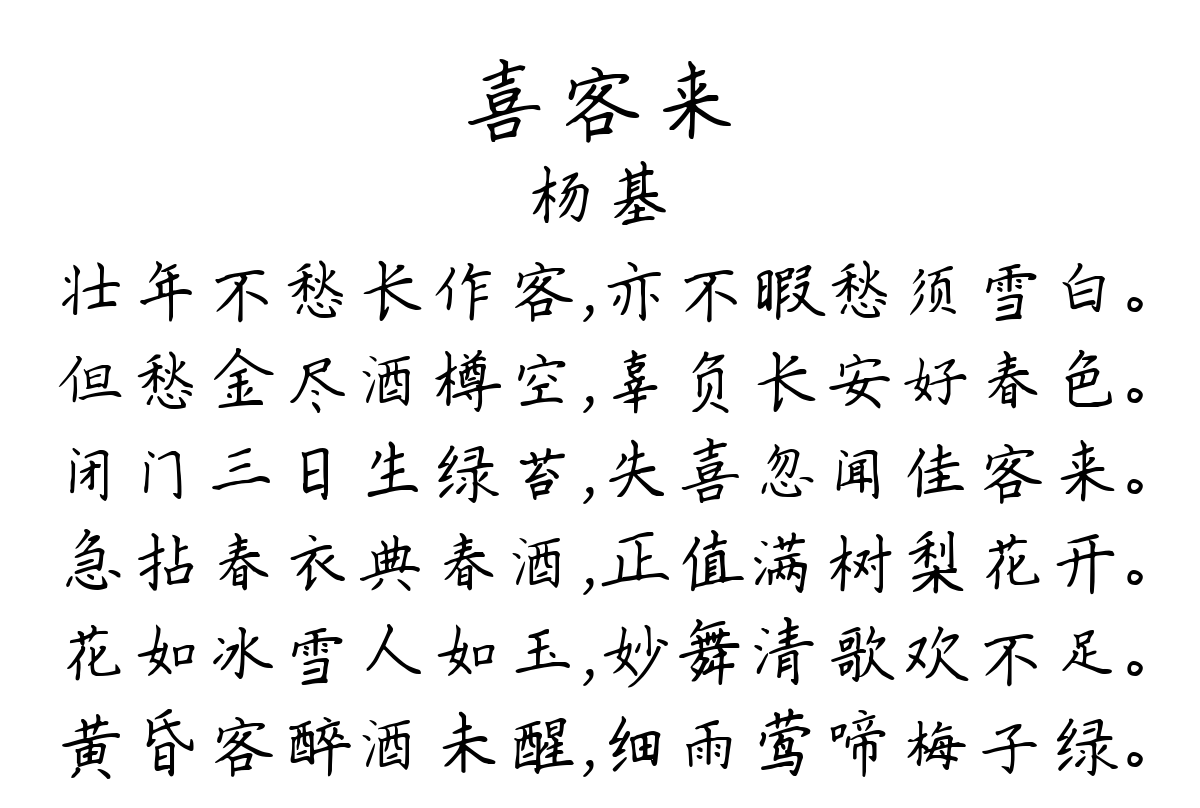 喜客来
杨基
壮年不愁长作客,亦不暇愁须雪白。
但愁金尽酒樽空,辜负长安好春色。
闭门三日生绿苔,失喜忽闻佳客来。
急拈春衣典春酒,正值满树梨花开。
花如冰雪人如玉,妙舞清歌欢不足。
黄昏客醉酒未醒,细雨莺啼梅子绿。